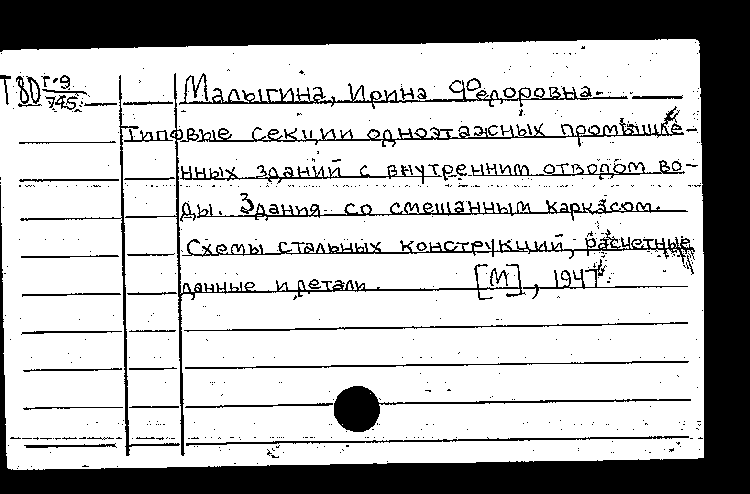 Т80 Г-9
745
Малыгина, Ирина Федоровна.
Типовые секции одноэтажных промышле-
нных зданий с внутренним отводом во-
ды. Здания со смешанным каркасом.
Схемы стальных конструкций, расчетные
данные и детали. [М], 1947.